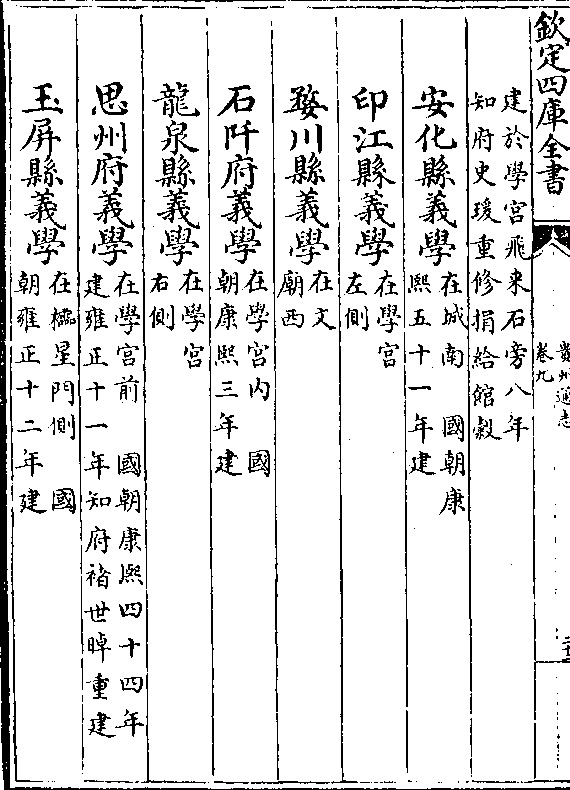 欽定四庫全書
貴州通志
卷九
建於學宫飛来石旁八年
知府史瑗重修捐給館穀
安化縣義學
在城南 國朝康
熙五十一年建
印江縣義學
在學宫
左側
婺川縣義學
在文
廟西
石阡府義學
在學宫内 國
朝康熙三年建
龍泉縣義學
在學宫
右側
思州府義學
在學宫前 國朝康熙四十四年
建雍正十一年知府禇世暲重建
玉屏縣義學
在櫺星門側 國
朝雍正十二年建